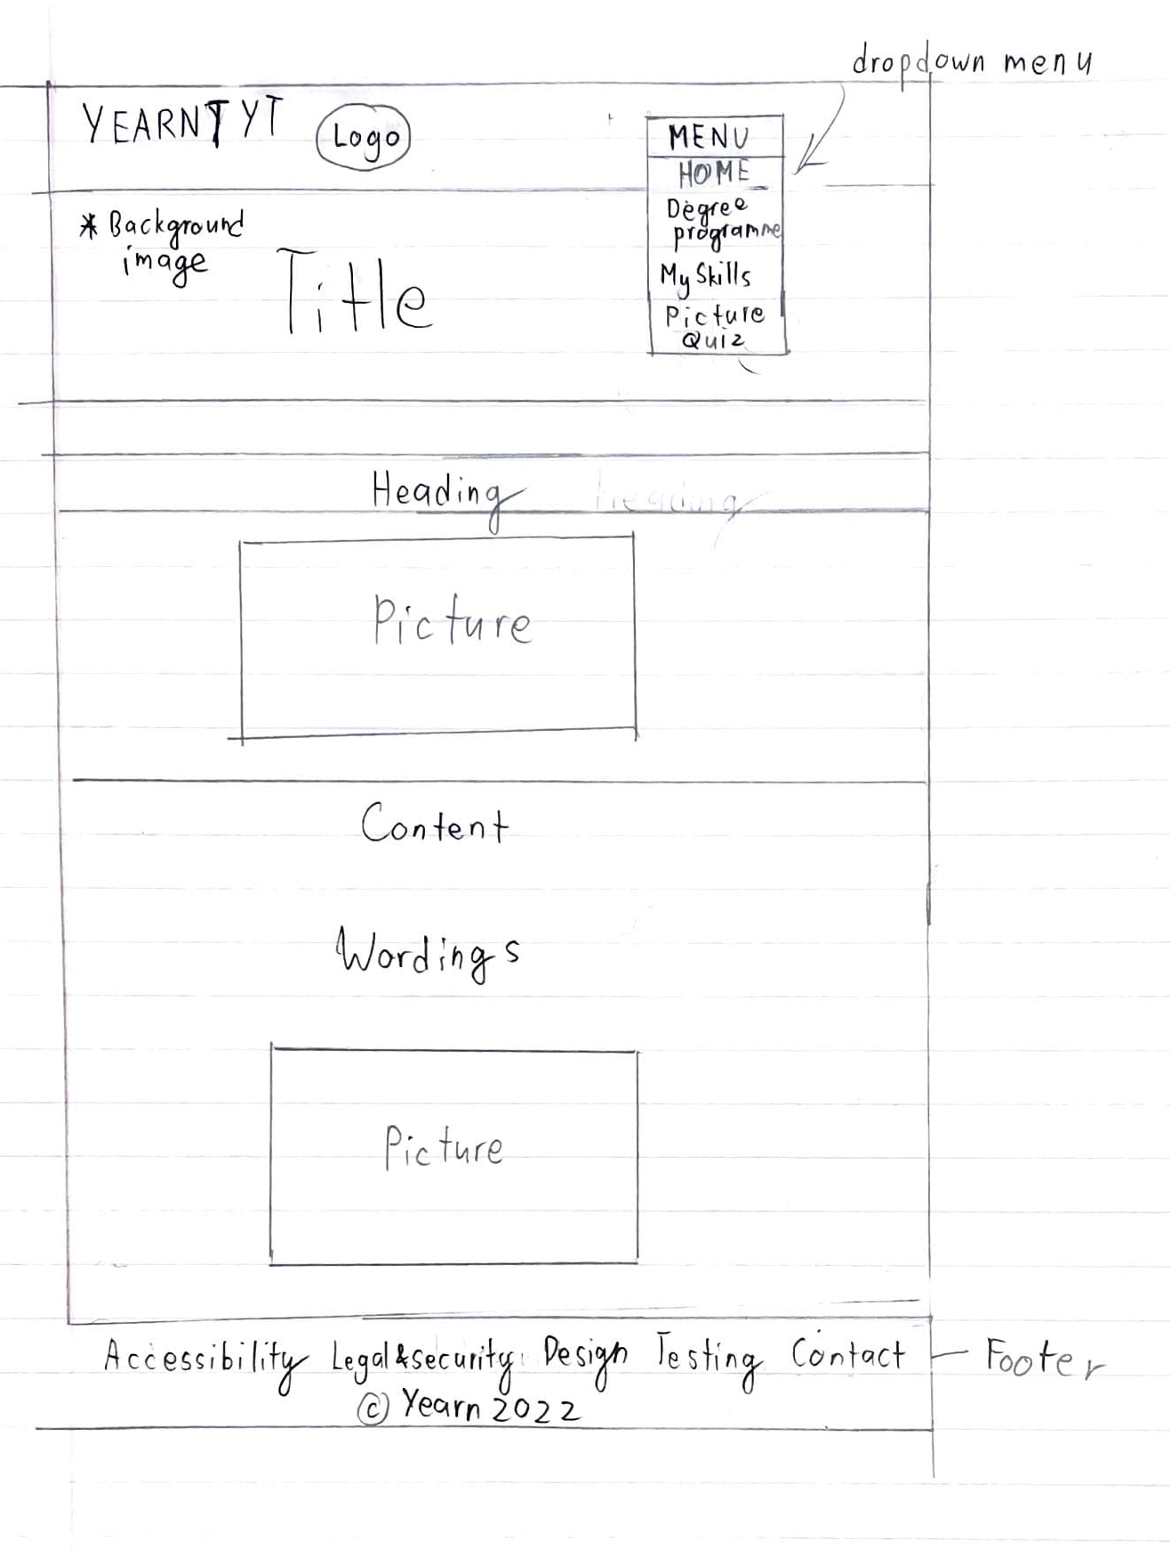 dropdown menu
YEARNTYT Logo
MENU
HOME
Degree
programme
My Skills
Picture
Quiz
* Background
image
Title
Heading heading
Picture
Content
Wordings
Picture
Accessibility Legal&security Design Testing Contact - Footer
© Yearn 2022